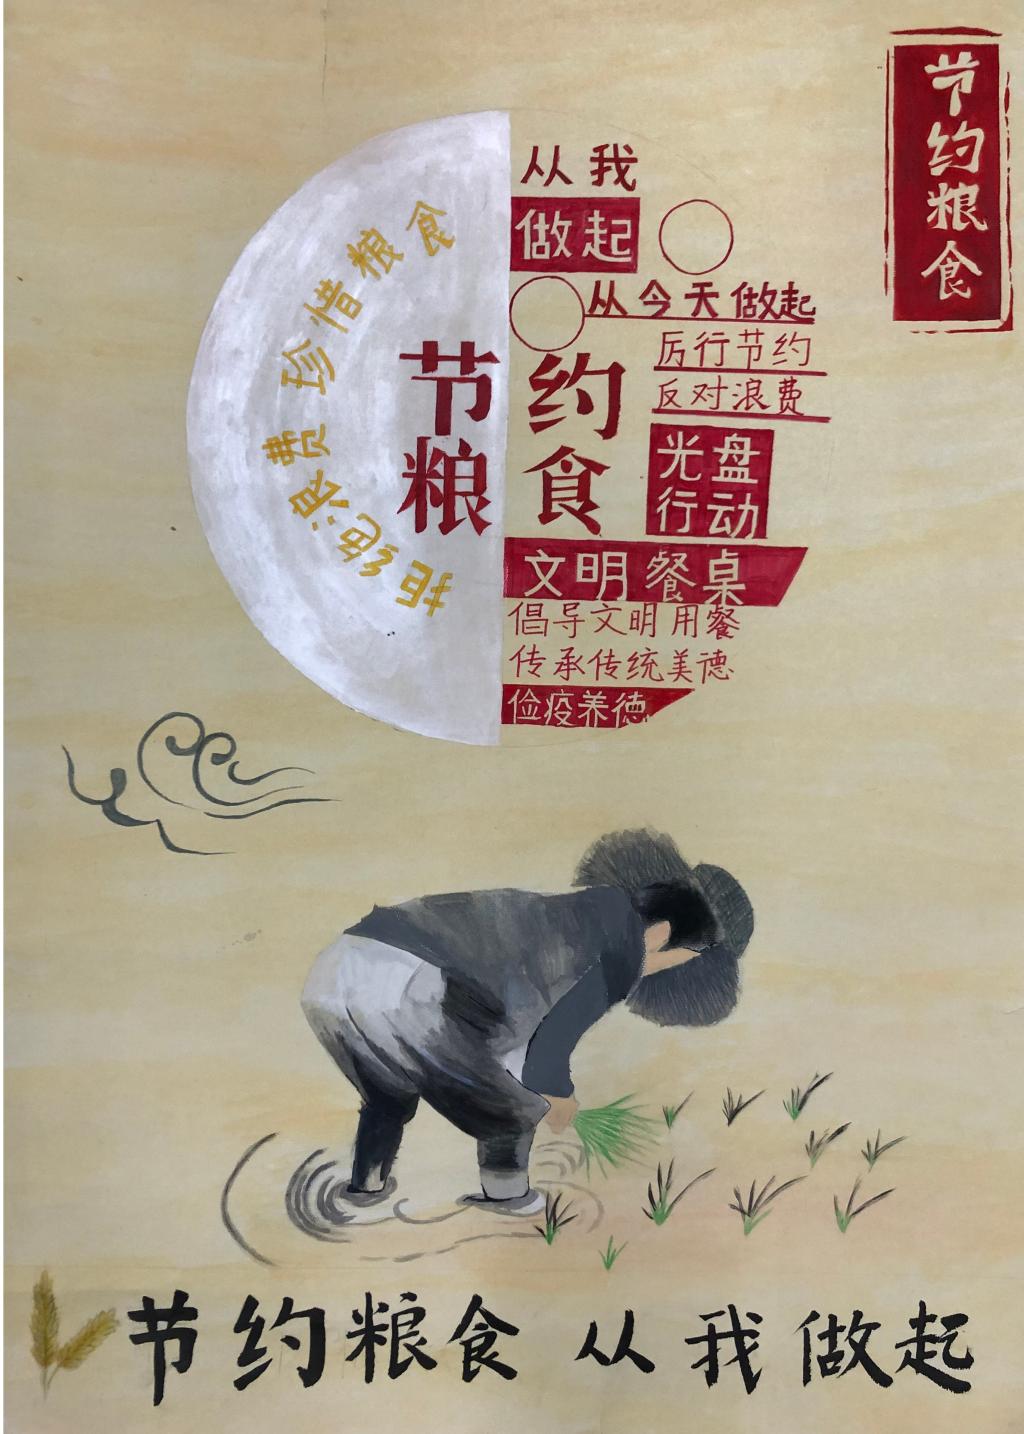 节约粮食
从我
做起
从今天做起
厉行节约
反对浪费
光盘
行动
节约
粮食
拒绝浪费珍惜粮食
文明餐桌
倡导文明用餐
传承传统美德
俭疫养德
节约粮食 从我做起